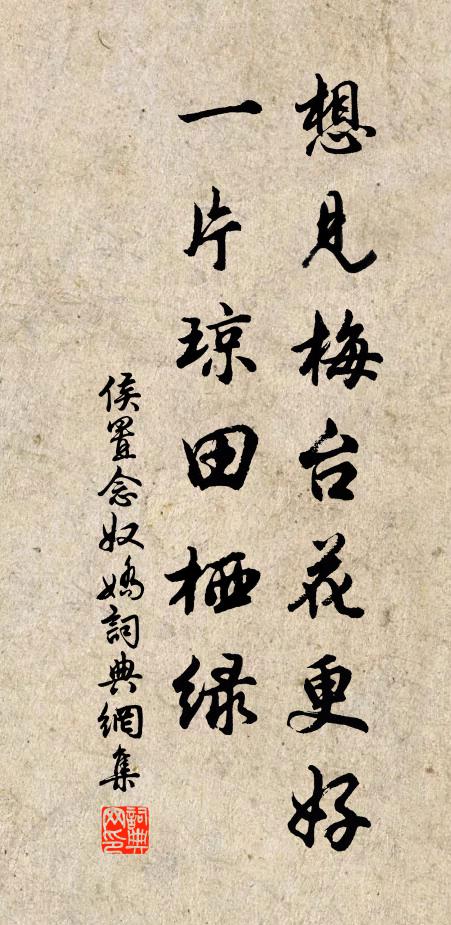 想见梅台花更好
一片琼田栖绿
侯置念奴娇詞典網集
詞典网印